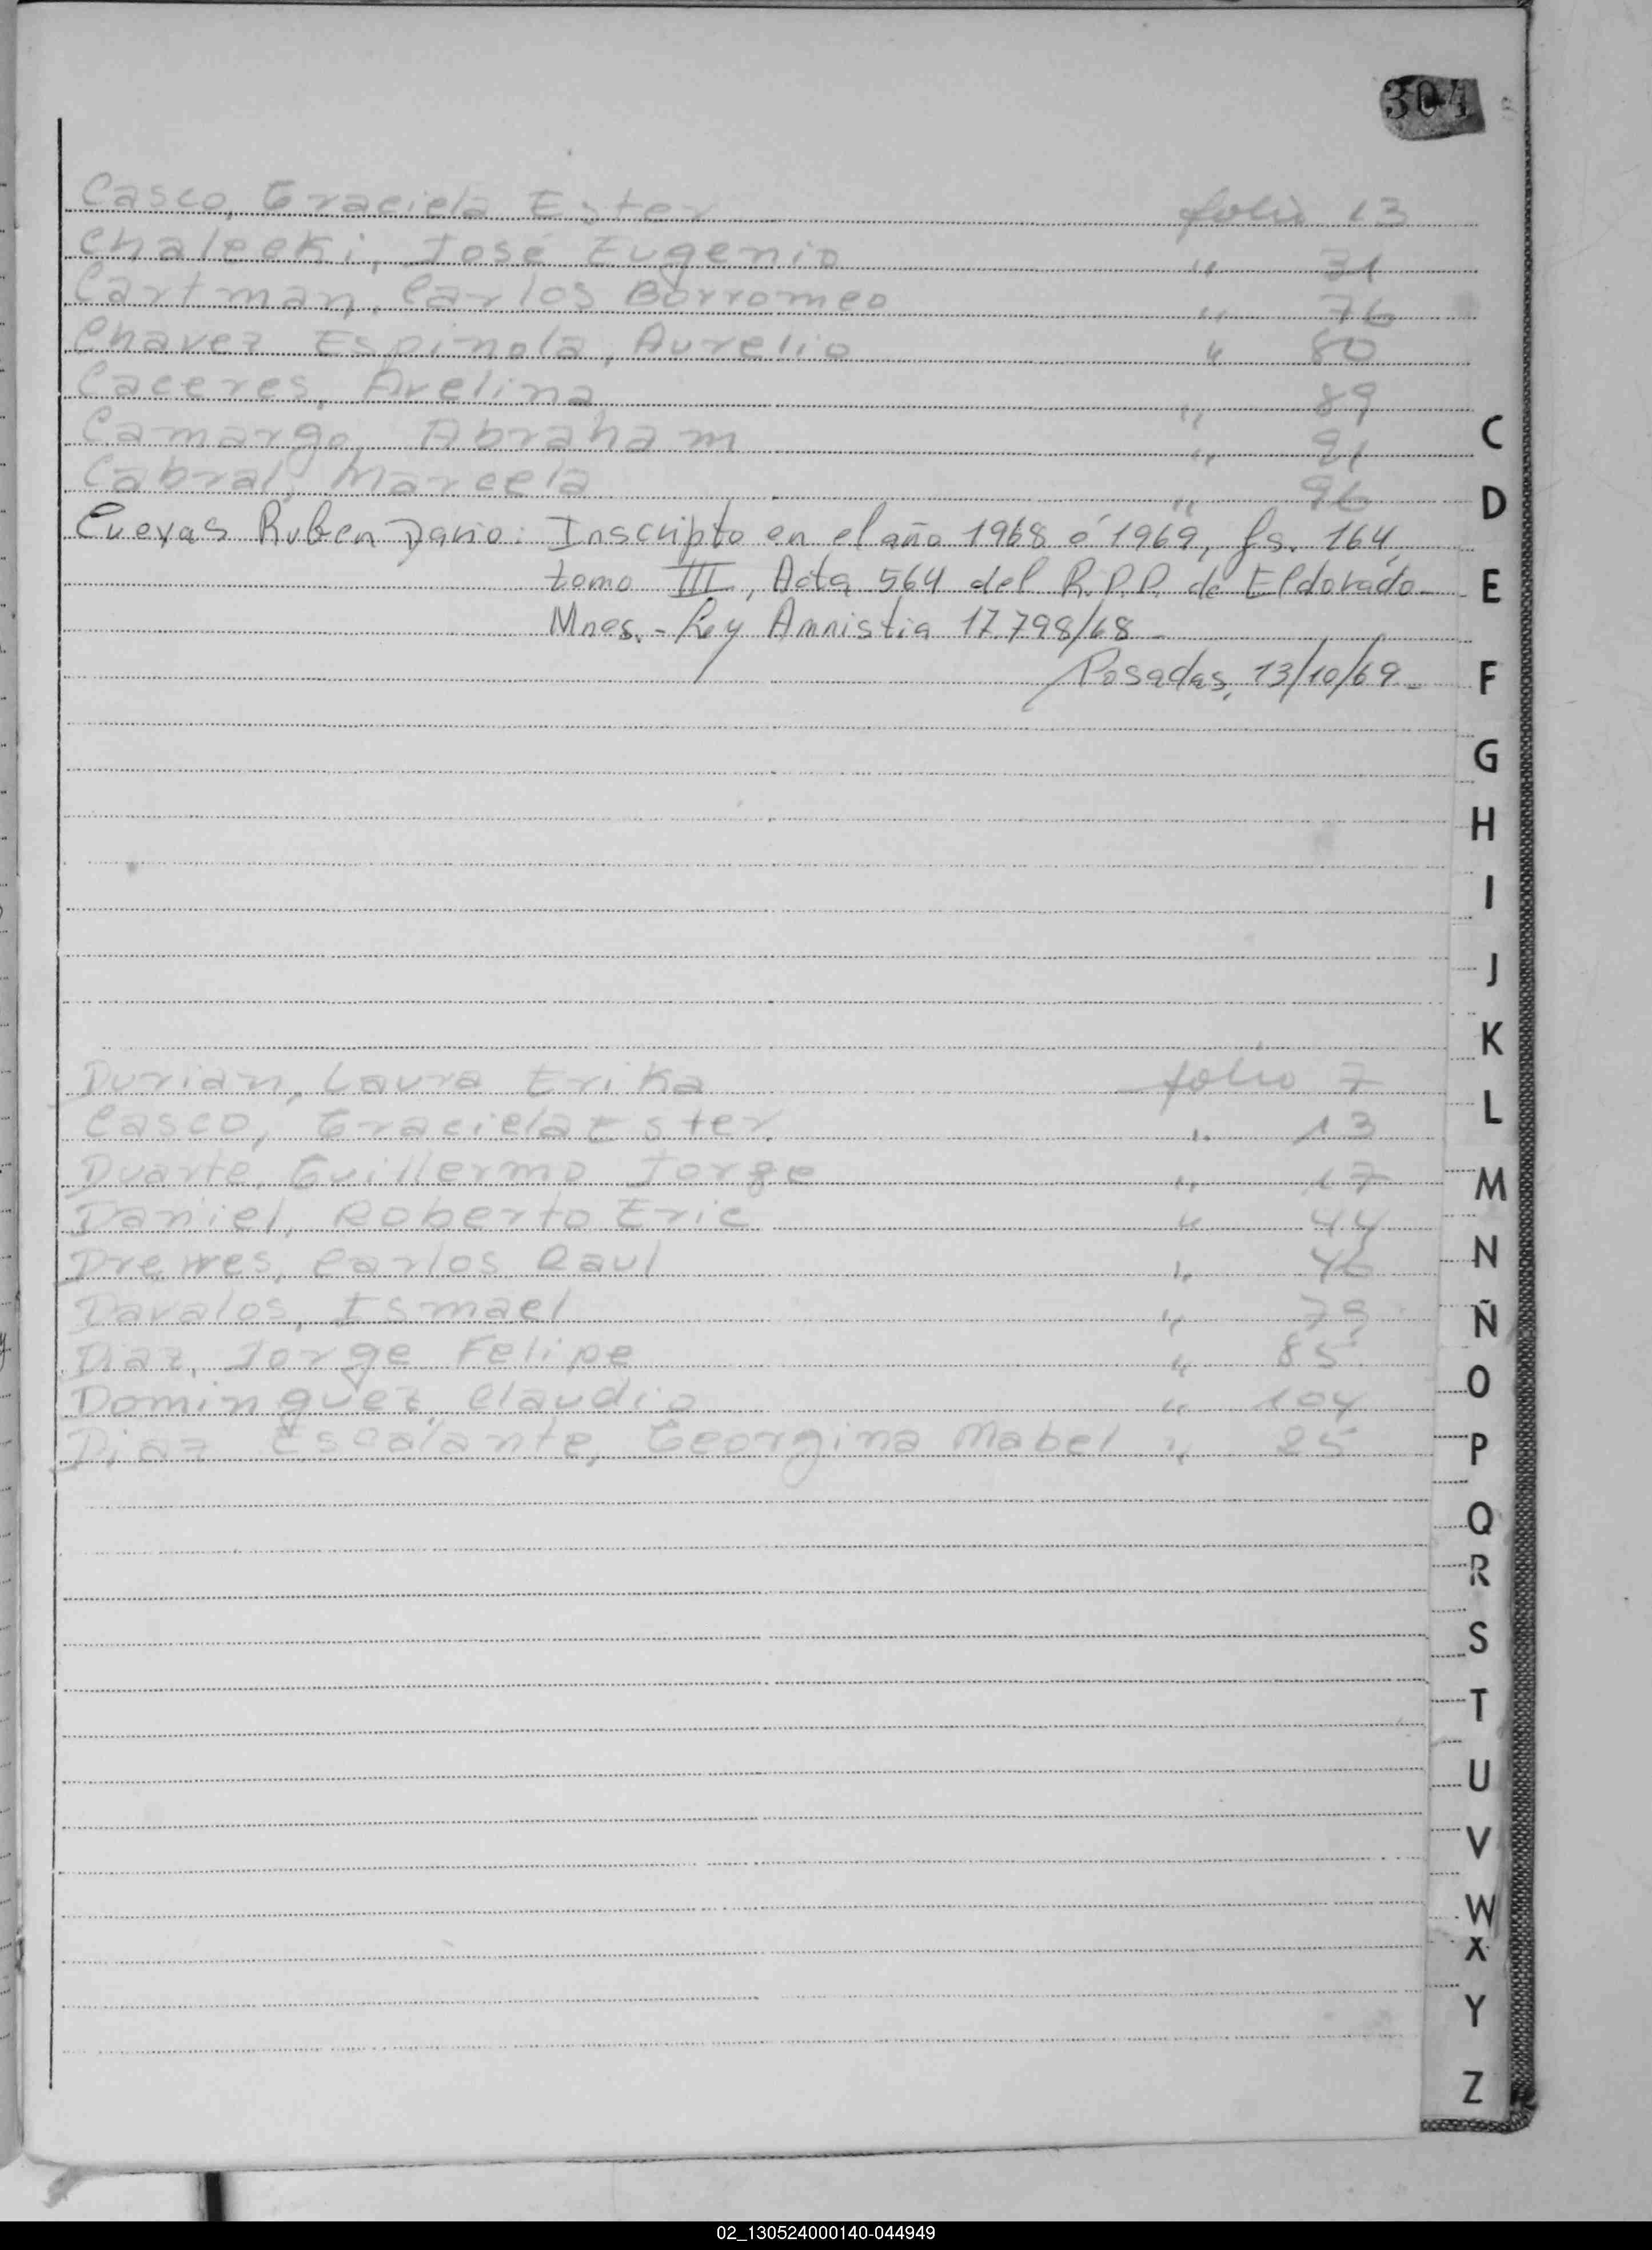 304
Casco, Graciela Ester folio 13
Chaleski, José Eugenio " 31
Cartman, Carlos Borromeo " 76
Chavez Espinola, Aurelio " 80
Caceres, Avelina " 89
Camargo Abraham " 91
Cabral, Marcela " 96
Cuevas Ruben Dario: Inscripto en el año 1968 ó 1969, fs. 164,
tomo III, Acta 564 del R.P.P. de Eldorado
Mnes. - Ley Amnistia 17.798/68 -
Posadas, 13/10/69 -
Durian, Laura Erika folio 7
Casco, Graciela Ester " 13
Duarte, Guillermo Jorge " 17
Daniel, Roberto Eric " 44
Drewes, Carlos Raul " 46
Davalos, Ismael " 79
Diaz, Jorge Felipe " 85
Dominguez, Claudio " 104
Diaz Escalante, Georgina Mabel "
C
D
E
F
G
H
I
J
K
L
M
N
Ñ
O
P
Q
R
S
T
U
V
W
X
Y
Z
02_130524000140-044949